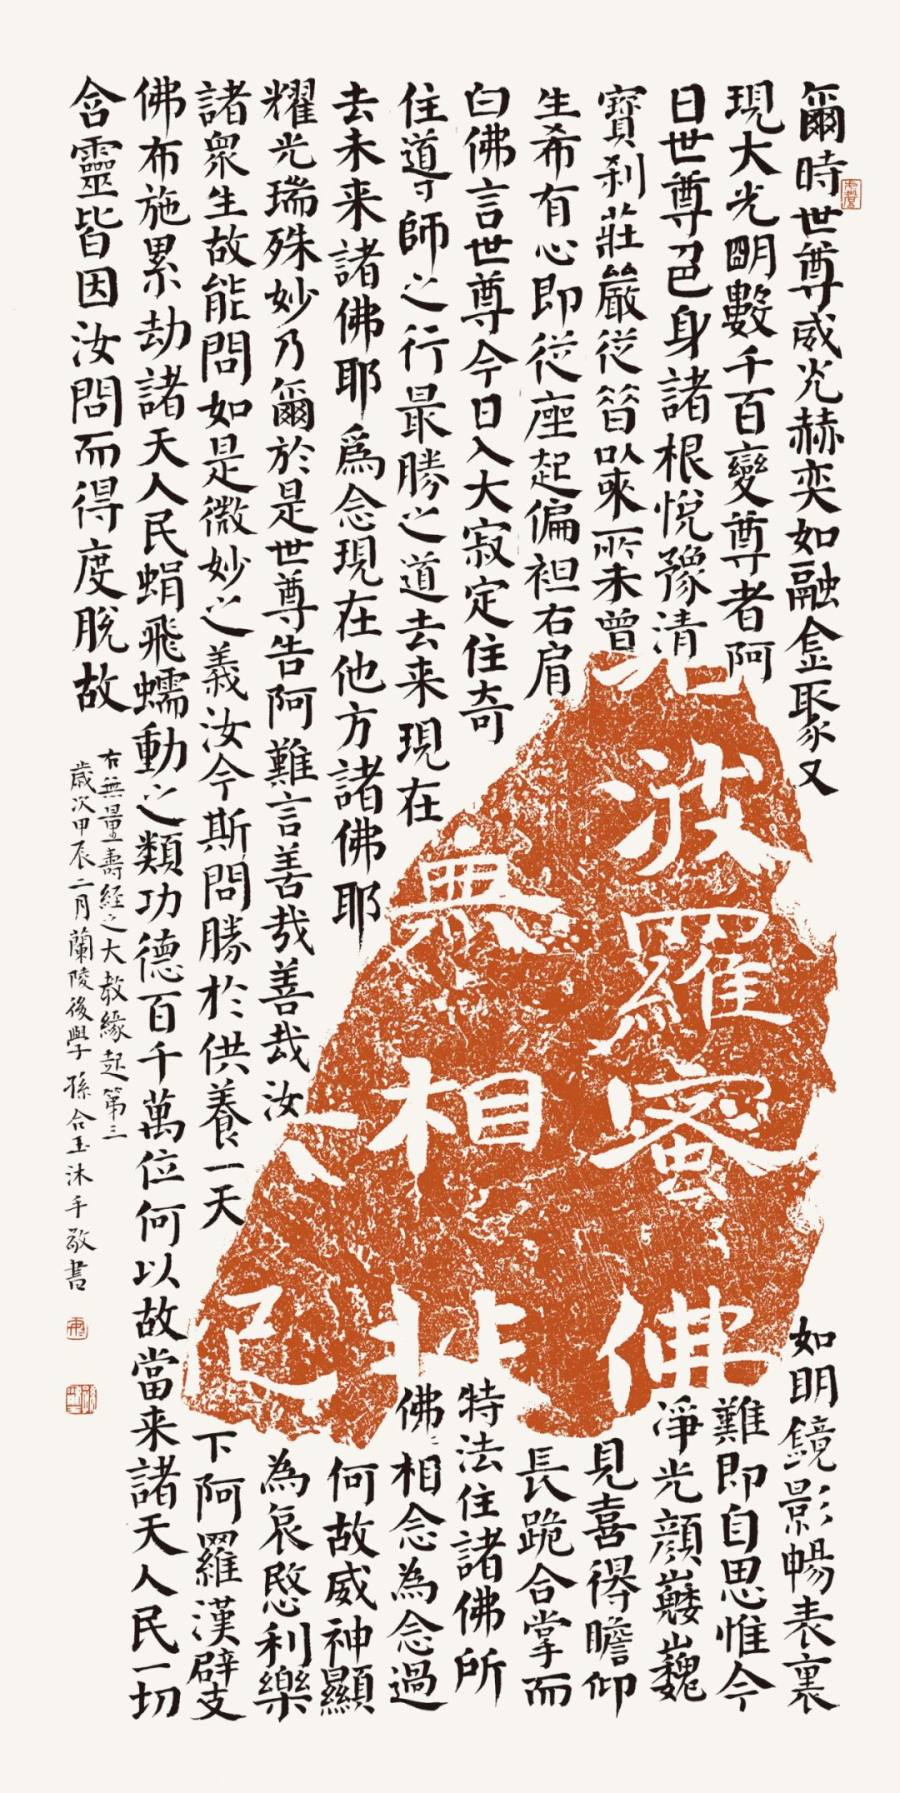 爾時世尊威光赫奕如融金聚又如明鏡影暢表裏
現大光明數千百變尊者阿難即自思惟今
日世尊色身諸根悅豫清淨光顏巍巍
寶刹莊嚴從昔以來所未曾見喜得瞻仰
生希有心即從座起偏袒右肩長跪合掌而
白佛言世尊今日入大寂定住奇特法住諸佛所
住導師之行最勝之道去来現在佛佛相念為念過
去未来諸佛耶爲念現在他方諸佛耶何故威神顯
耀光瑞殊妙乃爾於是世尊告阿難言善哉善哉汝為哀愍利樂
諸衆生故能問如是微妙之義汝今斯問勝於供養一天下阿羅漢辟支
佛布施累劫諸天人民蜎飛蠕動之類功德百千萬位何以故當来諸天人民一切
含靈皆因汝問而得度脫故
右無量壽經之大教緣起第三
歲次甲辰二月蘭陵後學孫合玉沐手敬書
波羅蜜佛
無相